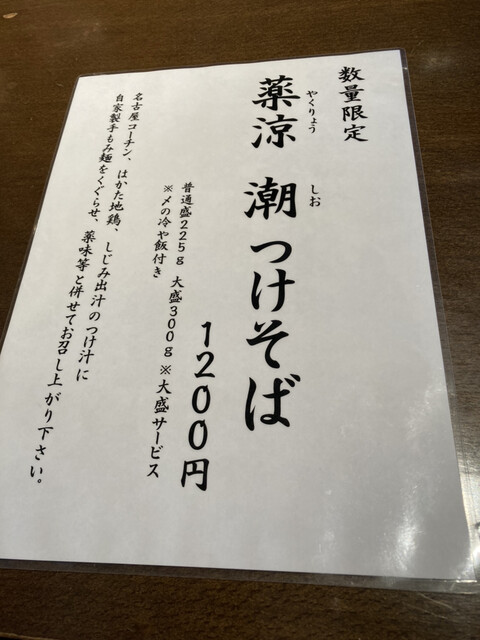 数量限定
薬涼 潮つけそば
やくりょう しお
1200円
普通盛225g 大盛300g ※大盛サービス
※〆の冷や飯付き
名古屋コーチン、はかた地鶏、しじみ出汁のつけ汁に
自家製手もみ麺をくぐらせ、薬味等と併せてお召し上がり下さい。